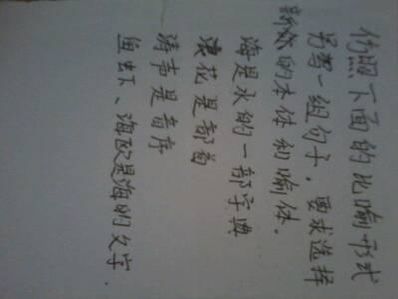 仿照下面的比喻形式
另写一组句子，要求选择
新的本体和喻体．
海是水的一部字典
浪花是部首
涛声是音序
鱼虾、海欧是海的文字．